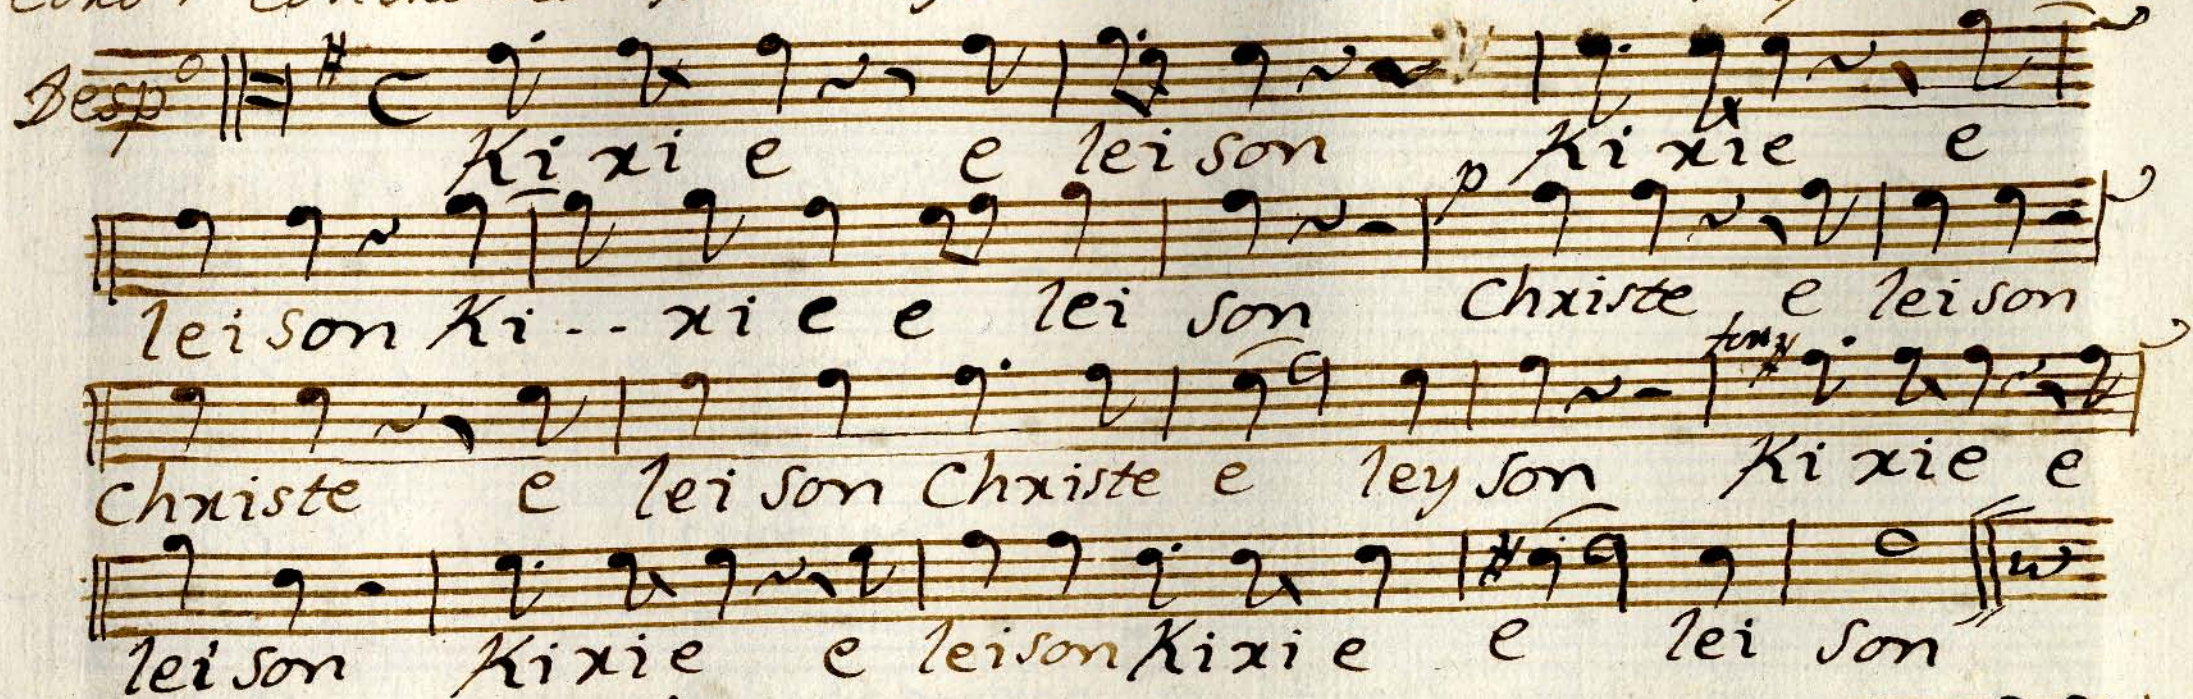 Desp.º
Kixi e e leison Kixie e
p
leison Ki - - xi e e lei son Chxiste e leison
Chxiste e lei son Chxiste e leyson Kixie e
leison Kixie e leison Kixi e e lei son